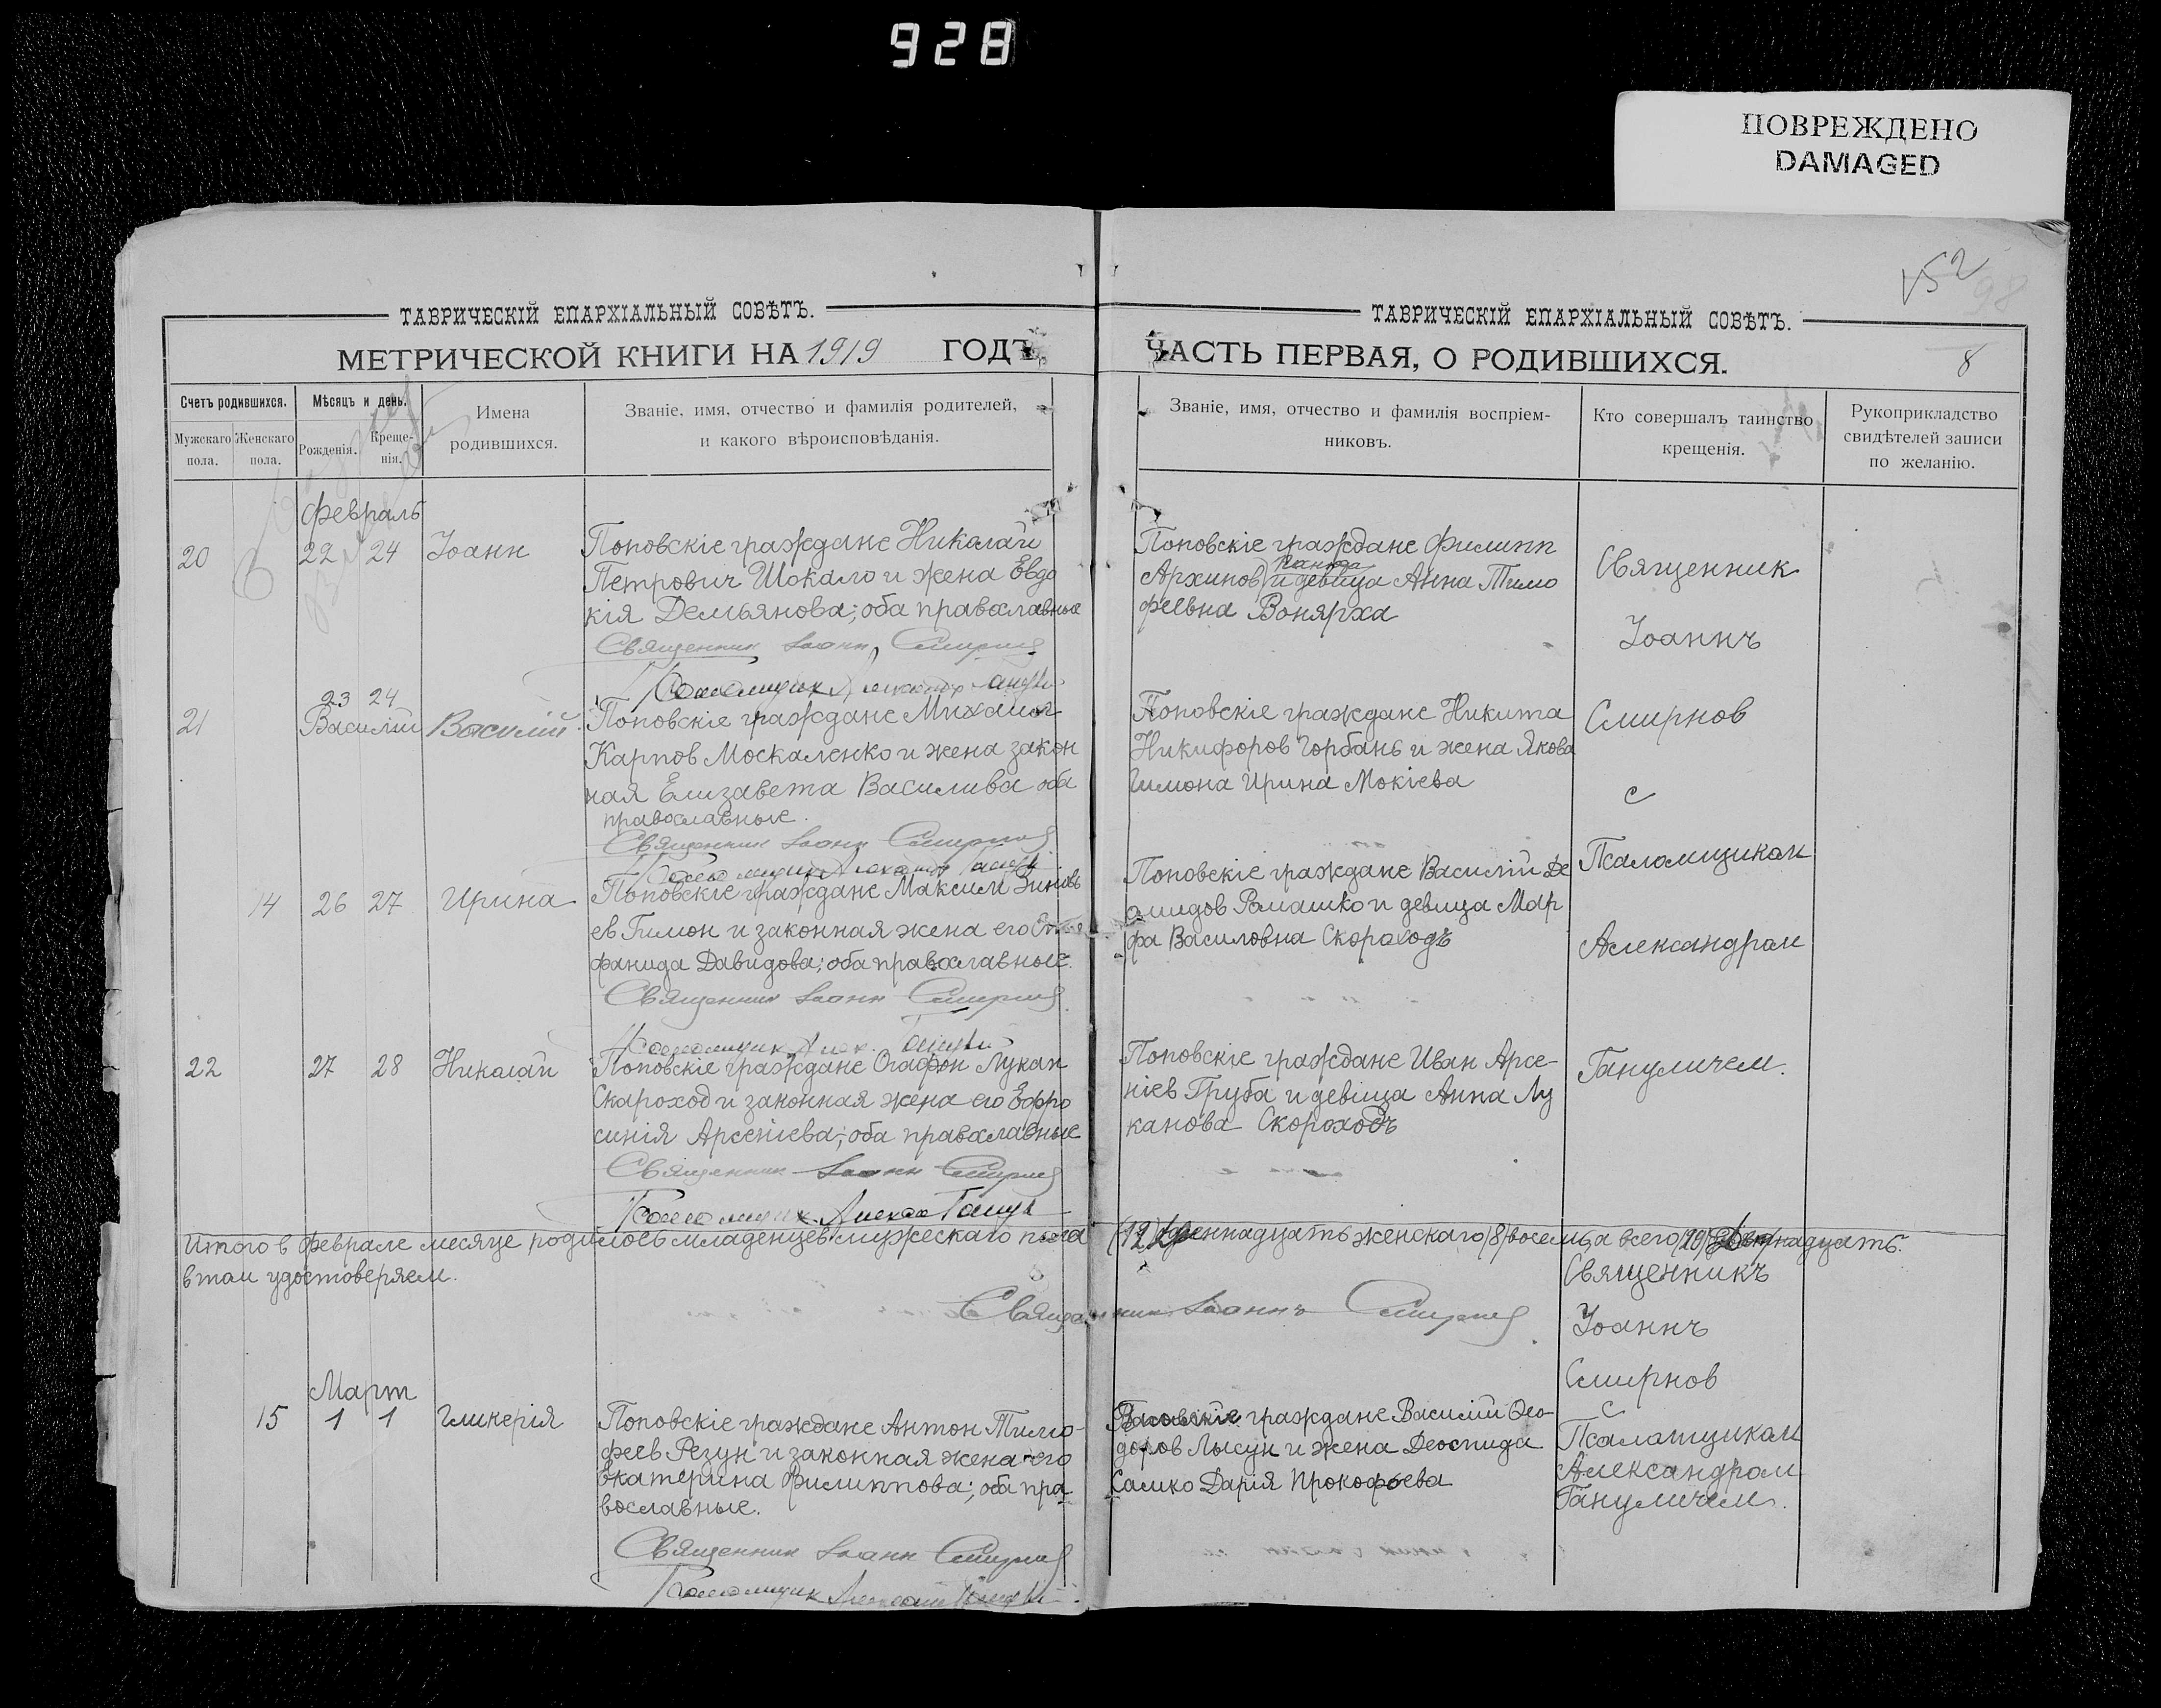 928
ПОВРЕЖДЕНО
DAMAGED
52
98
ТАВРИЧЕСКІЙ ЕПАРХІАЛЬНЫЙ СОВѢТЪ.
МЕТРИЧЕСКОЙ КНИГИ НА 1919 ГОДЪ.
Счетъ родившихся.
Мужскаго пола.
Женскаго пола.
Мѣсяцъ и день.
Рожденія.
Креще-
нія.
Имена
родившихся.
Званіе, имя, отчество и фамилія родителей,
и какого вѣроисповѣданія.
ТАВРИЧЕСКІЙ ЕПАРХІАЛЬНЫЙ СОВѢТЪ.
ЧАСТЬ ПЕРВАЯ, О РОДИВШИХСЯ.
8
Званіе, имя, отчество и фамилія воспріем-
никовъ.
Кто совершалъ таинство
крещенія.
Рукоприкладство
свидѣтелей записи
по желанію.
Февраль
20 22 24 Іоанн
Поповскіе граждане Николай
Петрович Шокало и жена Евдо
кія Демьянова; оба православные
Священник Іоанн Смирнов
Псаломщик
Поповскіе граждане Филипп
Архипов и девица Анна Тимо
феевна Вонярха
23 24
21 Василій Василій
Поповскіе граждане Михаил
Карпов Москаленко и жена закон
ная Елизавета Василива оба
православные.
Священник Іоанн Смирнов
Псаломщик
Поповскіе граждане Никита
Никифоров Горбань и жена Якова
Гимона Ирина Мокіева
14 26 27 Ирина
Поповскіе граждане Максим Зиновь
ев Гимон и законная жена его
фанида Давидова; оба православные.
Священник Іоанн Смирнов
Псаломщик
Поповскіе граждане Василій Де
мидов Ромашко и девица Мар
фа Василовна Скороходъ
22 27 28 Николай
Поповскіе граждане Огафон Лукан
Скароход и законная жена его Ефро
синія Арсеніева; оба православные
Священник Іоанн Смирнов
Псаломщик
Поповскіе граждане Иван Арсе-
ніев Груба и девица Анна Лу
канова Скороходъ
Священник
Іоаннъ
Смирнов
с
Псаломщиком
Александром
Гануличем.
Итого в Феврале месяце родилось младенцев мужескаго пола (12) женскаго (8) восемь, а всего (20)
в том удостоверяем.
Священник Іоаннъ Смирнов
Март
15 1 1 Гликерія
Поповскіе граждане Антон Тимо-
феев Резун и законная жена его
Екатерина Филиппова; оба пра
вославные.
Священник Іоанн Смирнов
Псаломщик
граждане Василій Ѳео-
доров Лысун и жена
Самко Дарія Прокофьева
Священникъ
Іоаннъ
Смирнов
с
Псаломщиком
Александром
Гануличем.